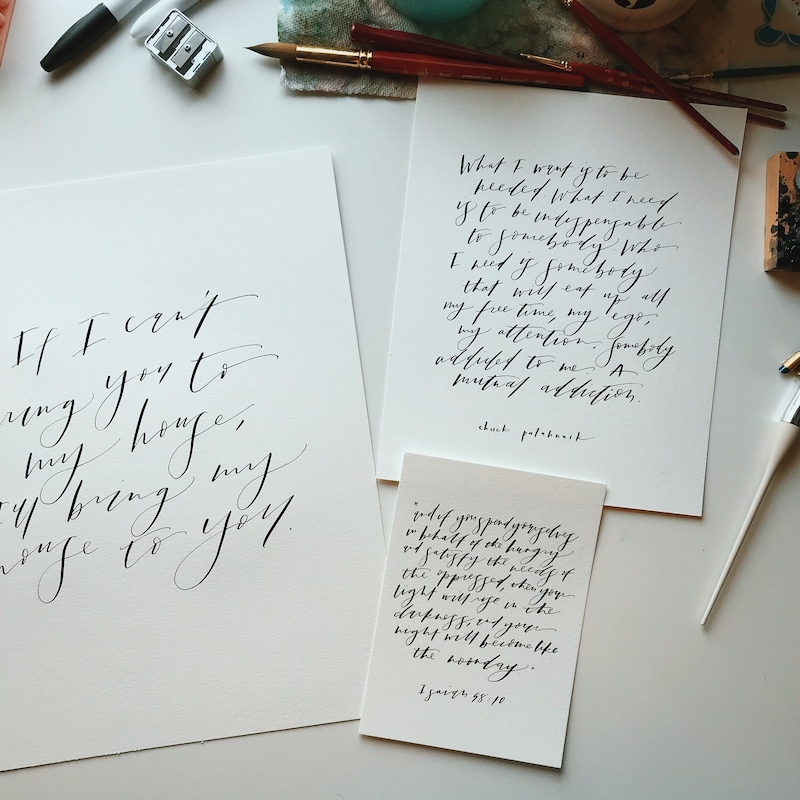 If I can't
ring you to
my house,
I'll bring my
house to you.
What I want is to be
needed What I need
is to be indispensable
to somebody Who
I need is somebody
that will eat up all
my free time, my ego,
my attention. Somebody
addicted to me. A
mutual addiction.
chuck palahnuik
"and if you spend yourselves
in behalf of the hungry
and satisfy the needs of
the oppressed, then your
light will rise in the
darkness, and your
night will become like
the noonday.
Isaiah 58:10